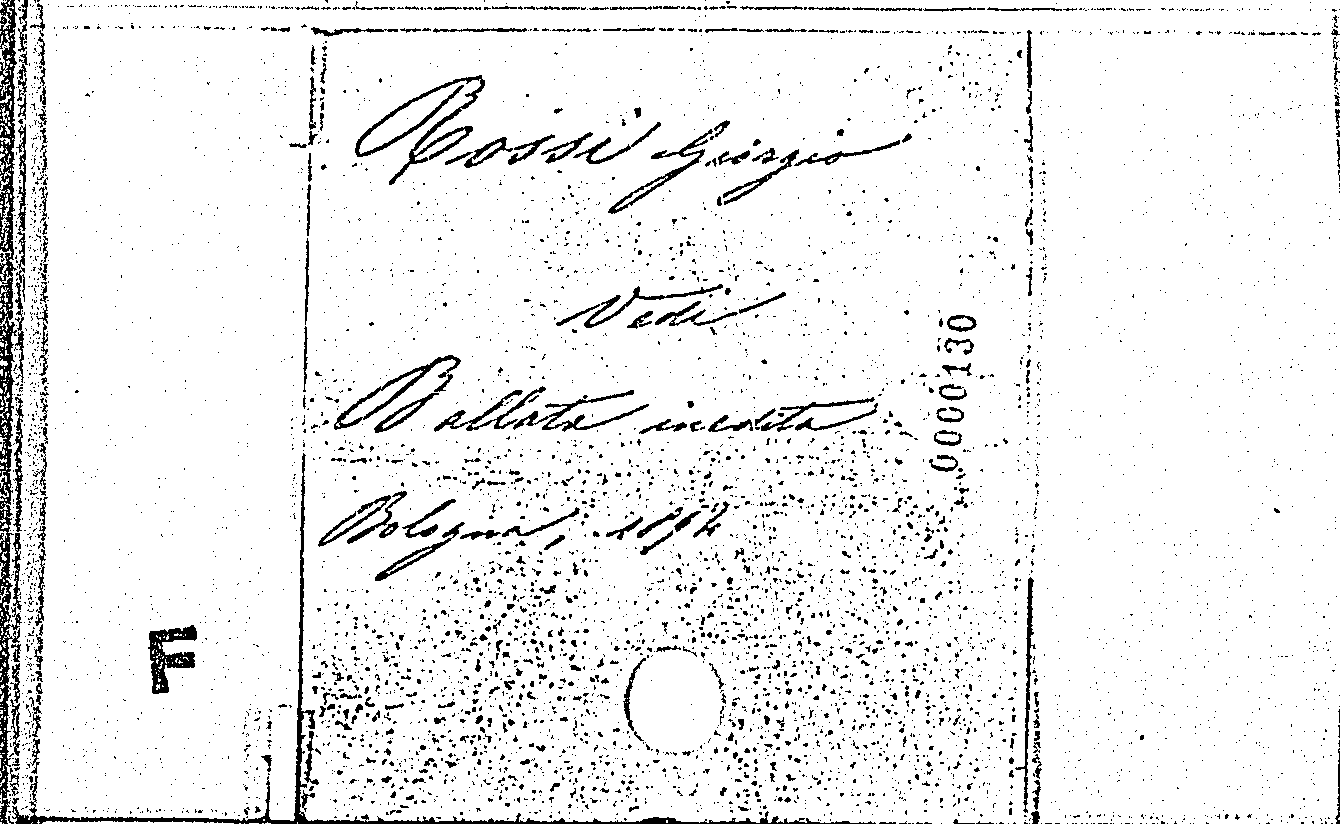 Rossi Giorgio
Vedi
Ballata inedita
Bologna, 1894
0000130
F